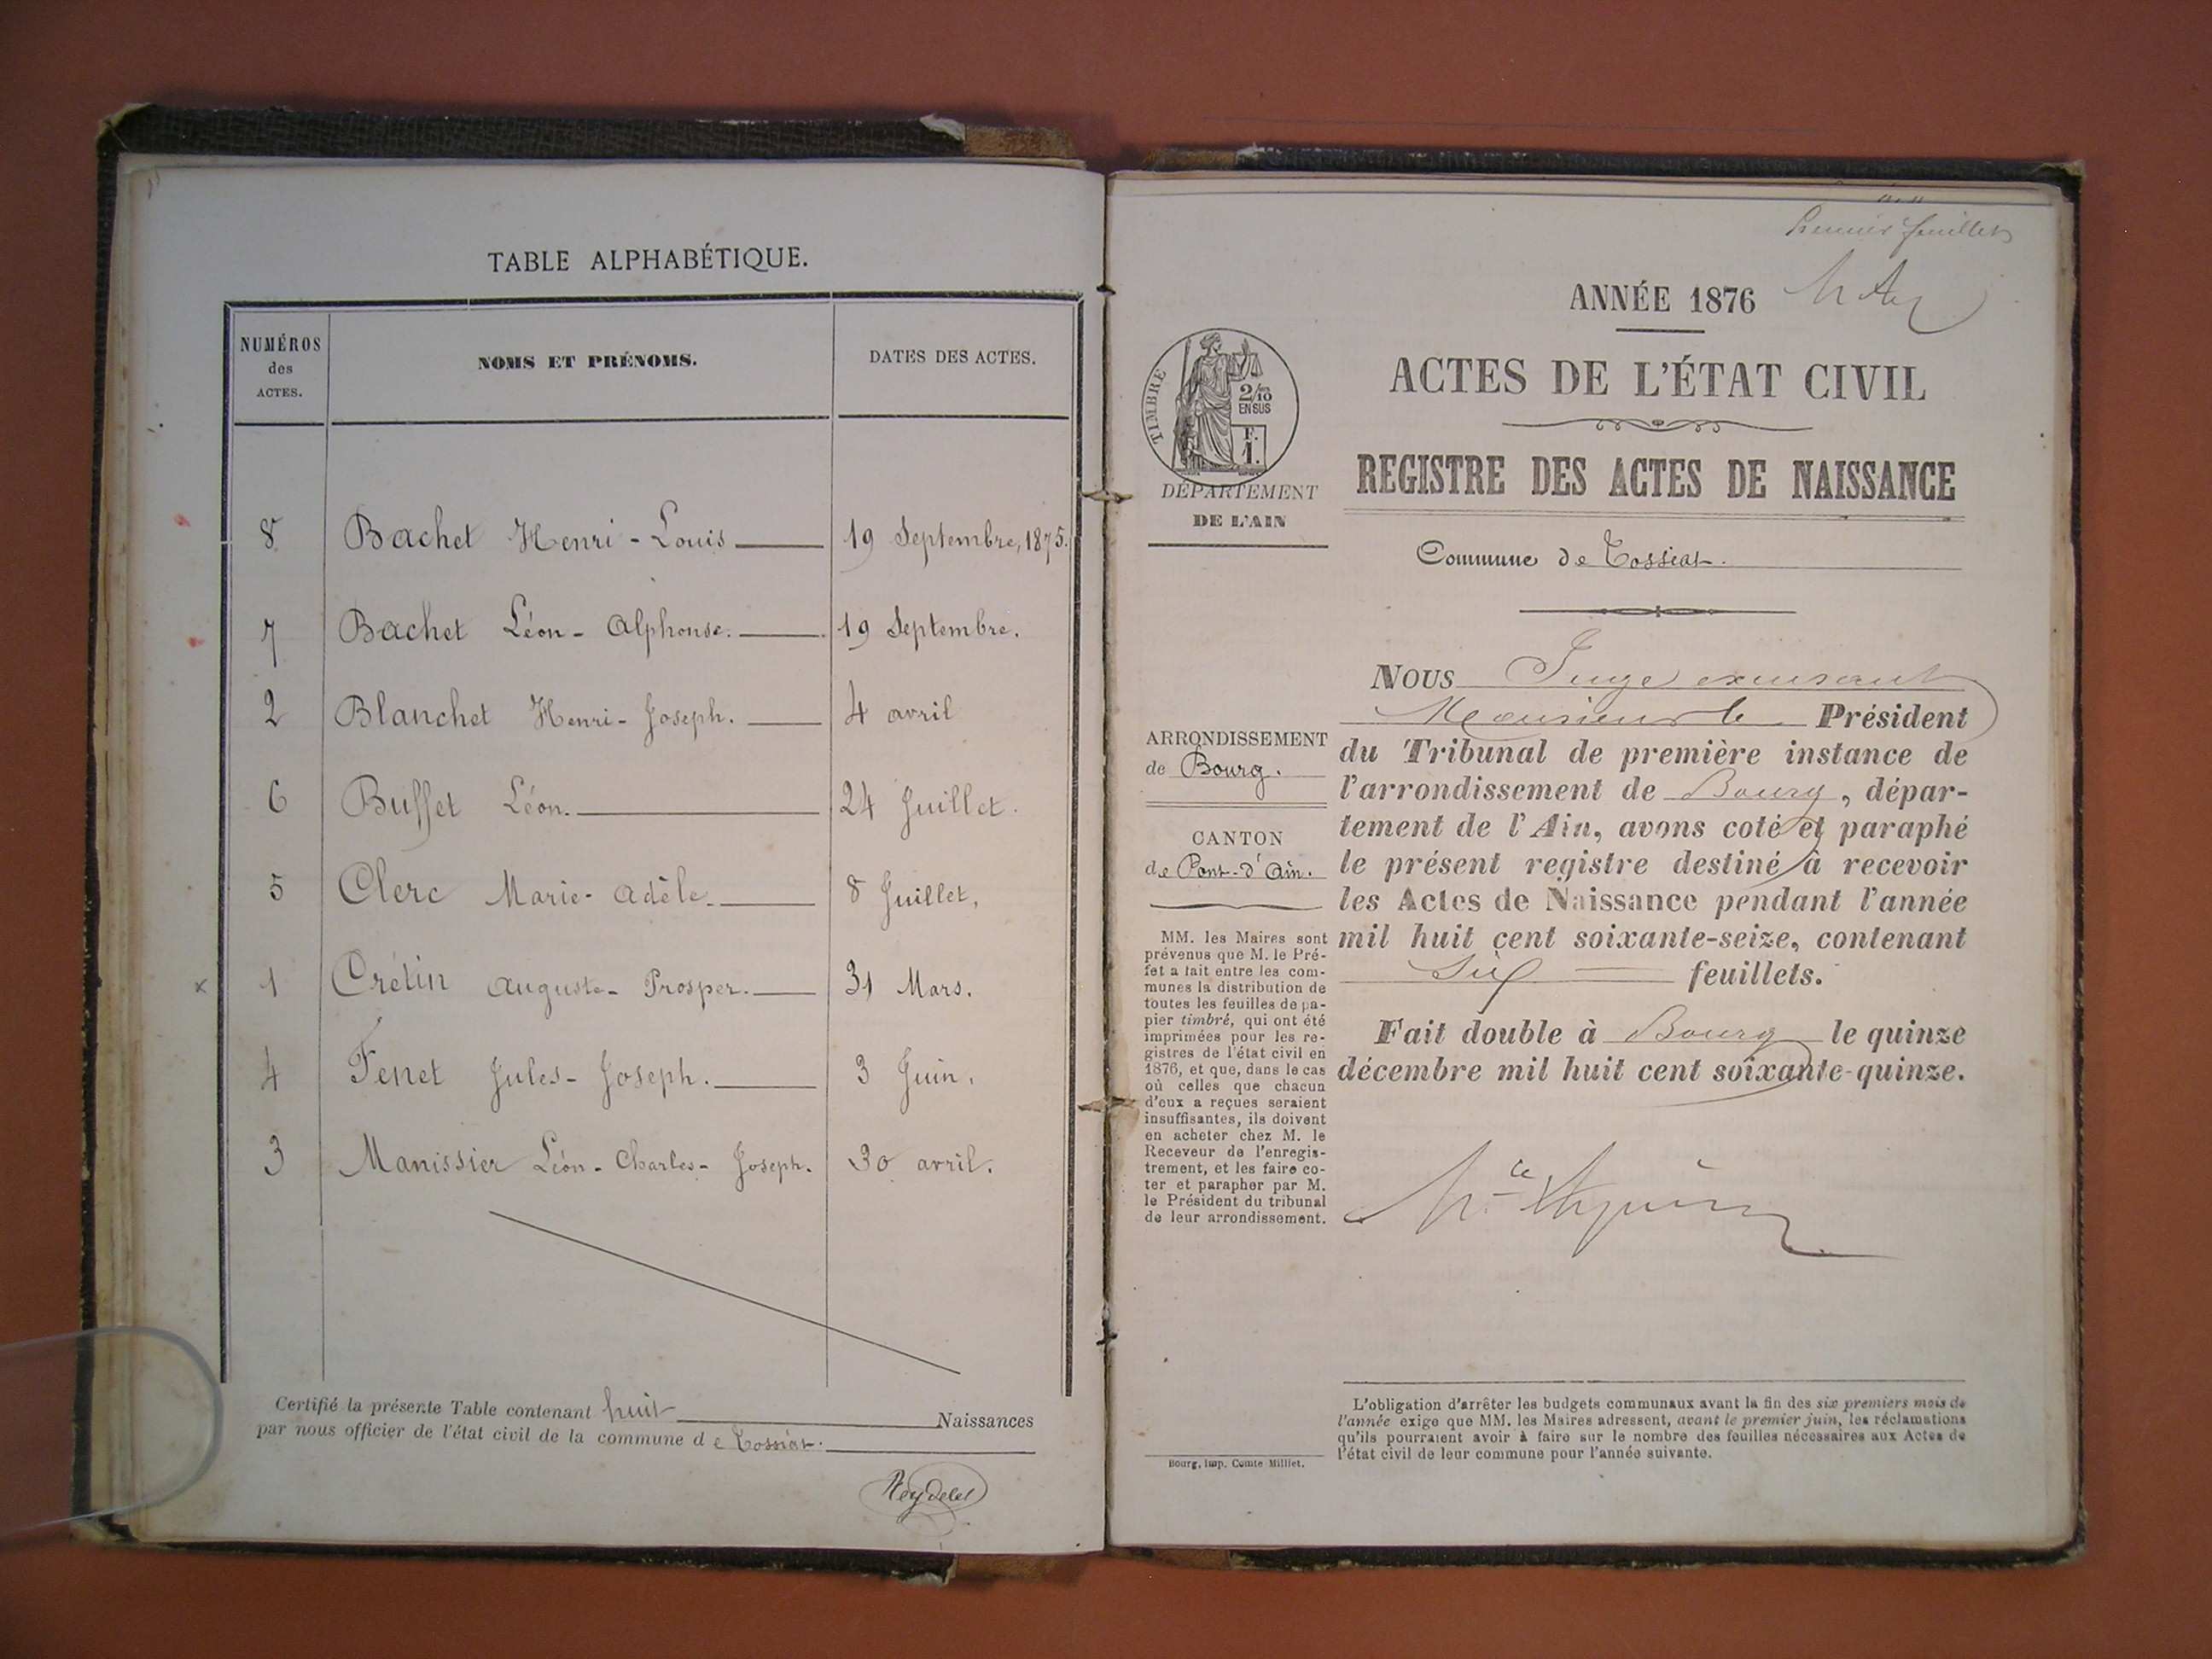 TABLE ALPHABÉTIQUE.
NUMÉROS
des
ACTES.
NOMS ET PRÉNOMS.
DATES DES ACTES.
8 Bachet Henri-Louis 19 Septembre, 1875.
7 Bachet Léon-Alphonse. 19 Septembre.
2 Blanchet Henri-Joseph. 4 avril
6 Buffet Léon. 24 Juillet.
5 Clerc Marie-Adèle. 8 Juillet,
x 1 Crétin Auguste-Prosper. 31 Mars.
4 Fenet Jules-Joseph. 3 Juin.
3 Manissier Léon-Charles-Joseph. 30 avril.
Certifié la présente Table contenant huit Naissances
par nous officier de l'état civil de la commune de Tossiat.
Reydelet
Premier feuillet
ANNÉE 1876
TIMBRE
2/10
EN SUS
F.
1.
ACTES DE L'ÉTAT CIVIL
REGISTRE DES ACTES DE NAISSANCE
DÉPARTEMENT
DE L'AIN
Commune de Tossiat.
ARRONDISSEMENT
de Bourg.
CANTON
de Pont-d'Ain.
MM. les Maires sont
prévenus que M. le Pré-
fet a fait entre les com-
munes la distribution de
toutes les feuilles de pa-
pier timbré, qui ont été
imprimées pour les re-
gistres de l'état civil en
1876, et que, dans le cas
où celles que chacun
d'eux a reçues seraient
insuffisantes, ils doivent
en acheter chez M. le
Receveur de l'enregis-
trement, et les faire co-
ter et parapher par M.
le Président du tribunal
de leur arrondissement.
Nous Juge
Monsieur le Président
du Tribunal de première instance de
l'arrondissement de Bourg, dépar-
tement de l'Ain, avons coté et paraphé
le présent registre destiné à recevoir
les Actes de Naissance pendant l'année
mil huit cent soixante-seize, contenant
Six feuillets.
Fait double à Bourg le quinze
décembre mil huit cent soixante-quinze.
L'obligation d'arrêter les budgets communaux avant la fin des six premiers mois de
l'année exige que MM. les Maires adressent, avant le premier juin, les réclamations
qu'ils pourraient avoir à faire sur le nombre des feuilles nécessaires aux Actes de
l'état civil de leur commune pour l'année suivante.
Bourg, Imp. Comte Milliet.